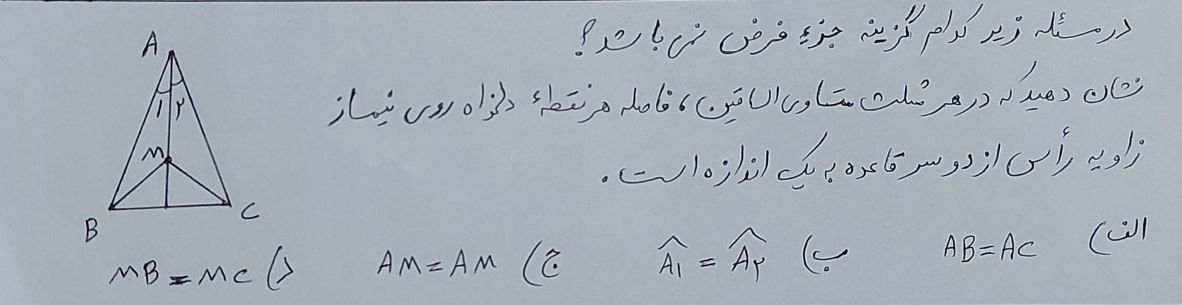 در مسئله زیر کدام گزینه جزءِ فرض نمی باشد؟
نشان دهید که در هر مثلث متساوی الساقین، فاصله هر نقطهٔ دلخواه روی نیمساز
زاویه رأس از دو سر قاعده به یک اندازه است.
الف) AB=AC ب) Â₁ = Â₂ ج) AM=AM د) MB=MC
A
۱ ۲
M
B C